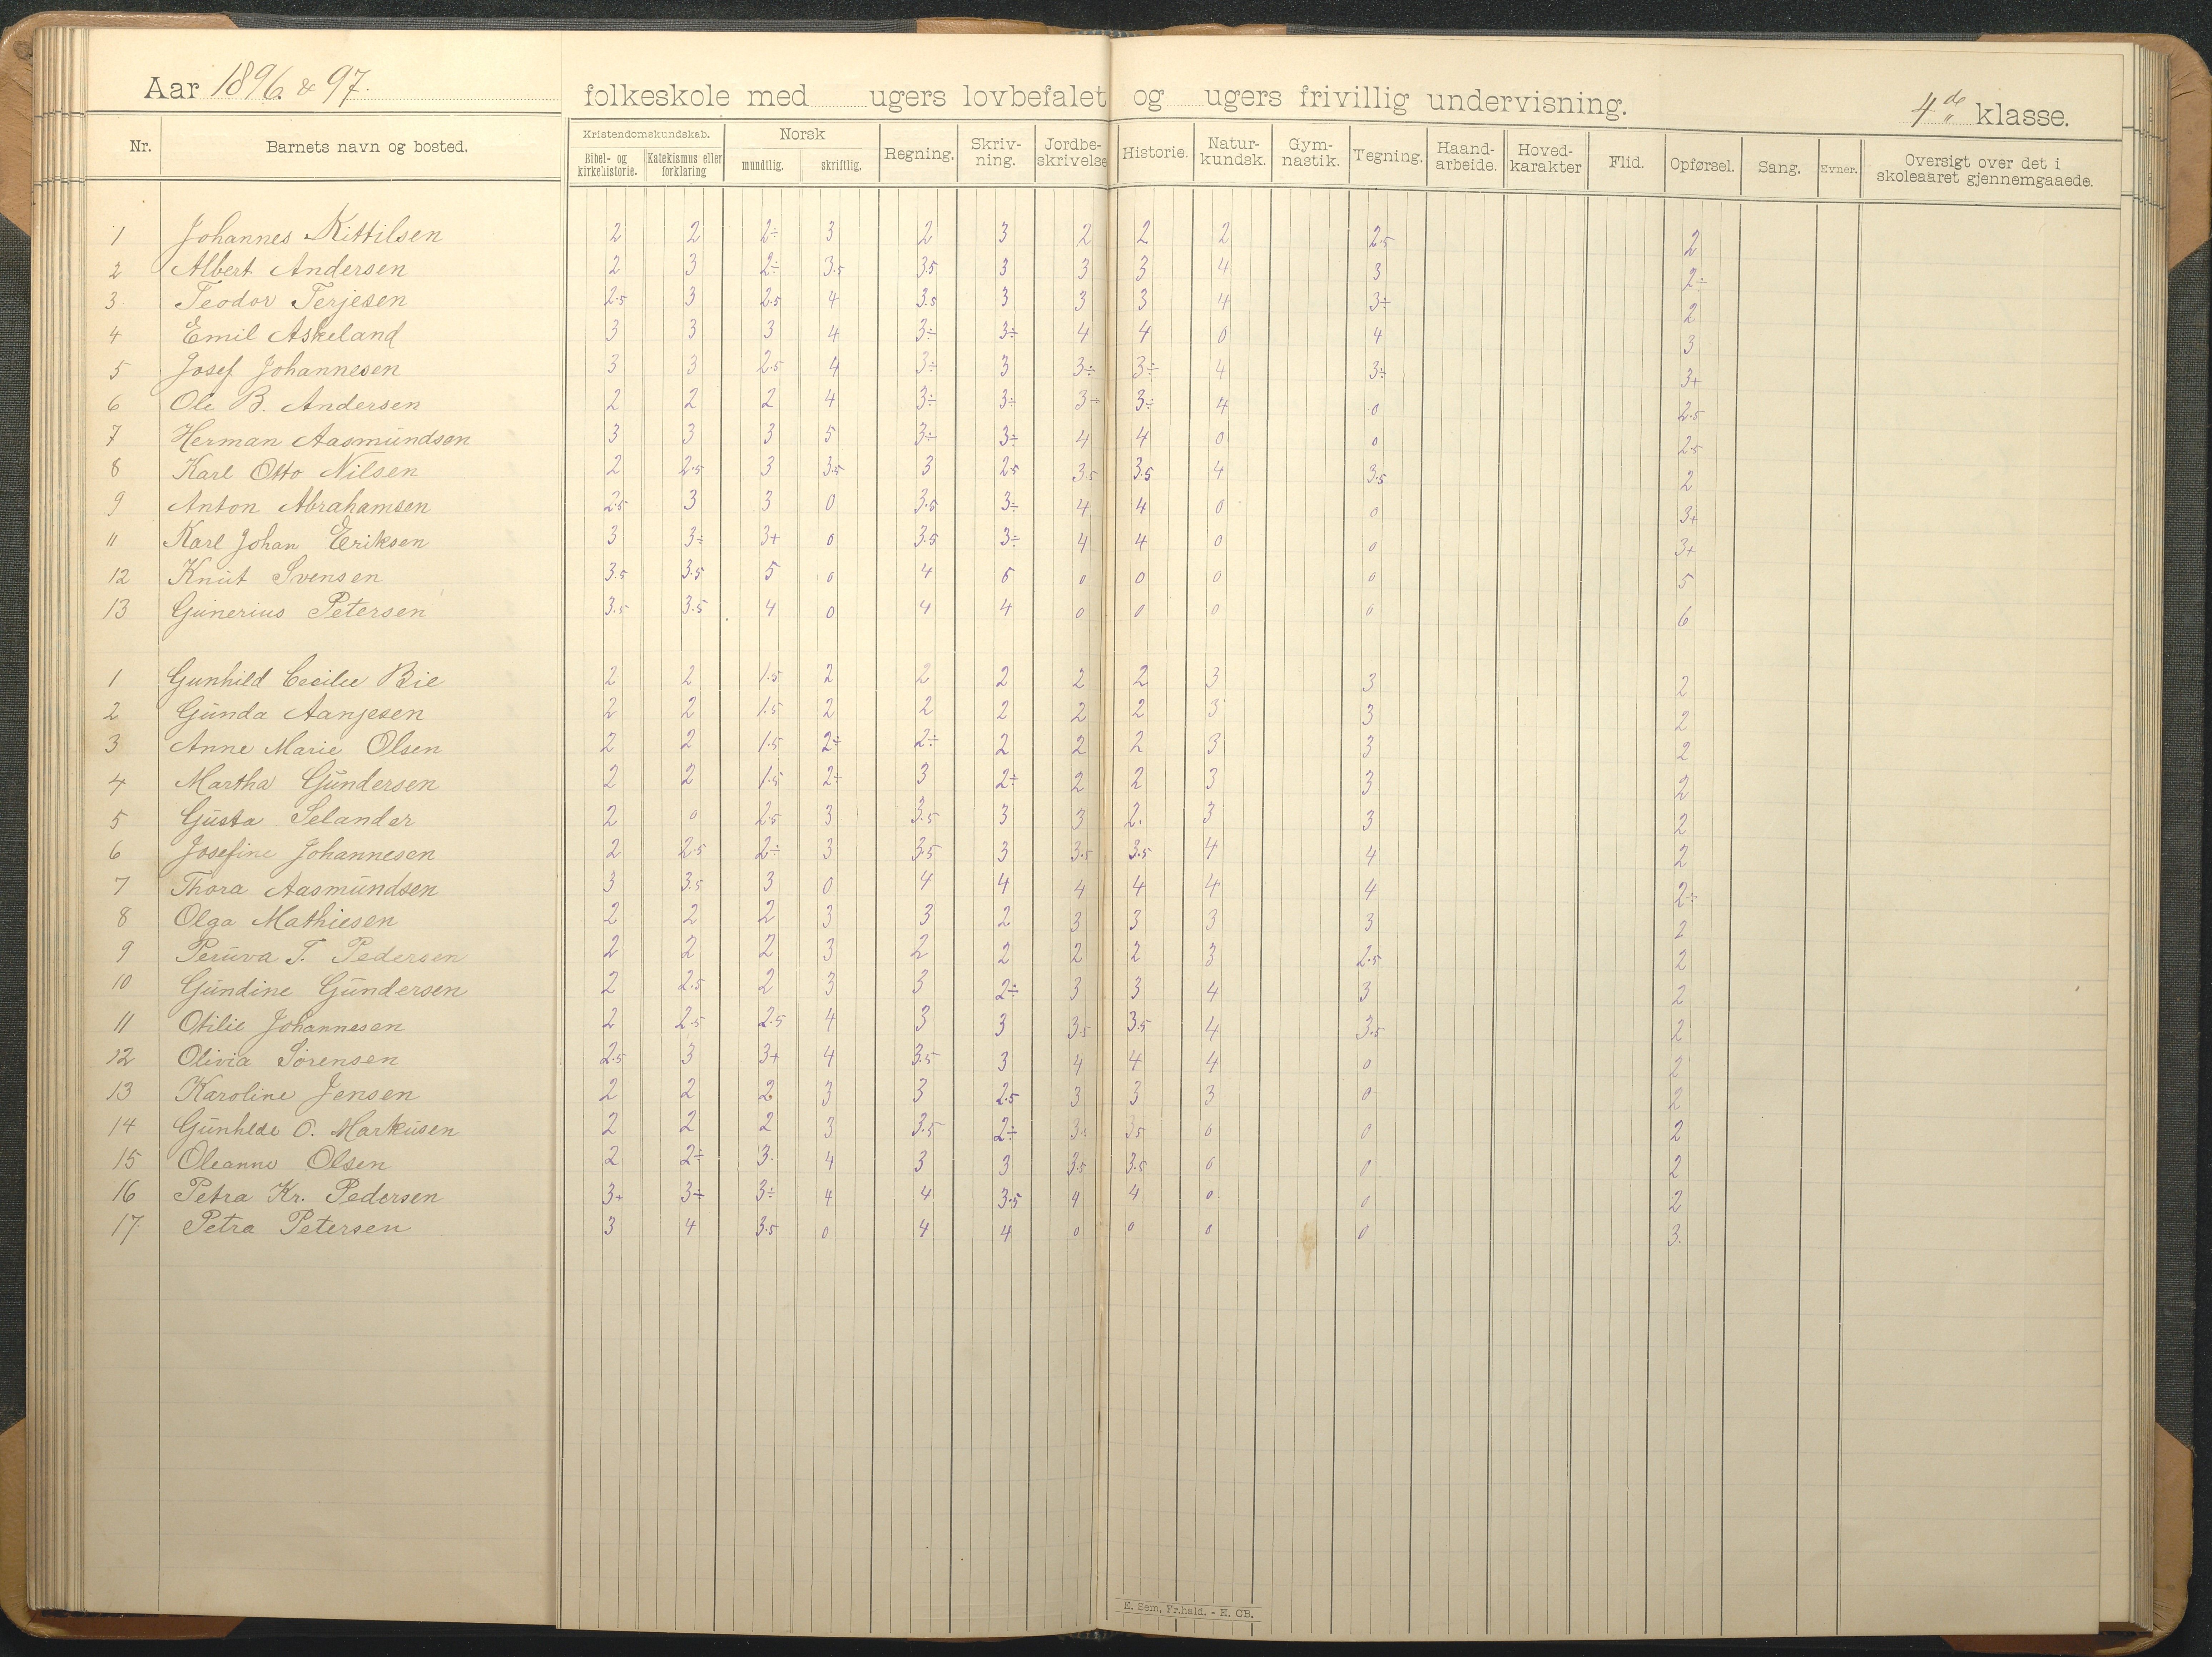 Aar 1896 & 97. folkeskole med ugers lovbefalet og ugers frivillig undervisning. 4de klasse.
Nr. Barnets navn og bosted. Kristendomskundskab. Bibel- og kirkehistorie. Katekismus eller forklaring Norsk mundtlig. skriftlig. Regning. Skriv-ning. Jordbe-skrivelse Historie. Natur-kundsk. Gym-nastik. Tegning. Haand-arbeide. Hoved-karakter Flid. Opførsel. Sang. Evner. Oversigt over det i skoleaaret gjennemgaaede.
1 Johannes Kittilsen 2 2 2÷ 3 2 3 2 2 2 2.5 2
2 Albert Andersen 2 3 2÷ 3.5 3.5 3 3 3 4 3 2÷
3 Teodor Terjesen 2.5 3 2.5 4 3.5 3 3 3 4 3÷ 2
4 Emil Askeland 3 3 3 4 3÷ 3÷ 4 4 0 4 3
5 Josef Johannesen 3 3 2.5 4 3÷ 3 3÷ 3÷ 4 3÷ 3+
6 Ole B. Andersen 2 2 2 4 3÷ 3÷ 3÷ 3÷ 4 0 2.5
7 Herman Aasmundsen 3 3 3 5 3÷ 3÷ 4 4 0 0 2.5
8 Karl Otto Nilsen 2 2.5 3 3.5 3 2.5 3.5 3.5 4 3.5 2
9 Anton Abrahamsen 2.5 3 3 0 3.5 3÷ 4 4 0 0 3+
11 Karl Johan Eriksen 3 3÷ 3+ 0 3.5 3÷ 4 4 0 0 3+
12 Knut Svensen 3.5 3.5 5 0 4 5 0 0 0 0 5
13 Gunerius Petersen 3.5 3.5 4 0 4 4 0 0 0 0 6
1 Gunhild Cecilie Bie 2 2 1.5 2 2 2 2 2 3 3 2
2 Gunda Aanjesen 2 2 1.5 2 2 2 2 2 3 3 2
3 Anne Marie Olsen 2 2 1.5 2÷ 2÷ 2 2 2 3 3 2
4 Martha Gundersen 2 2 1.5 2÷ 3 2÷ 2 2 3 3 2
5 Gusta Selander 2 0 2.5 3 3.5 3 3 2. 3 3 2
6 Josefine Johannesen 2 2.5 2÷ 3 3.5 3 3.5 3.5 4 4 2
7 Thora Aasmundsen 3 3.5 3 0 4 4 4 4 4 4 2÷
8 Olga Mathiesen 2 2 2 3 3 2 3 3 3 3 2
9 Peruva T. Pedersen 2 2 2 3 2 2 2 2 3 2.5 2
10 Gundine Gundersen 2 2.5 2 3 3 2÷ 3 3 4 3 2
11 Otilie Johannesen 2 2.5 2.5 4 3 3 3.5 3.5 4 3.5 2
12 Olivia Sørensen 2.5 3 3+ 4 3.5 3 4 4 4 0 2
13 Karoline Jensen 2 2 2 3 3 2.5 3 3 3 0 2
14 Gunhilde O. Markusen 2 2 2 3 3.5 2÷ 3.5 3.5 0 0 2
15 Oleanne Olsen 2 2÷ 3. 4 3 3 3.5 3.5 0 0 2
16 Petra Kr. Pedersen 3+ 3÷ 3÷ 4 4 3.5 4 4 0 0 2
17 Petra Petersen 3 4 3.5 0 4 4 0 0 0 0 3.
E. Sem, Fr.hald. - E. CB.